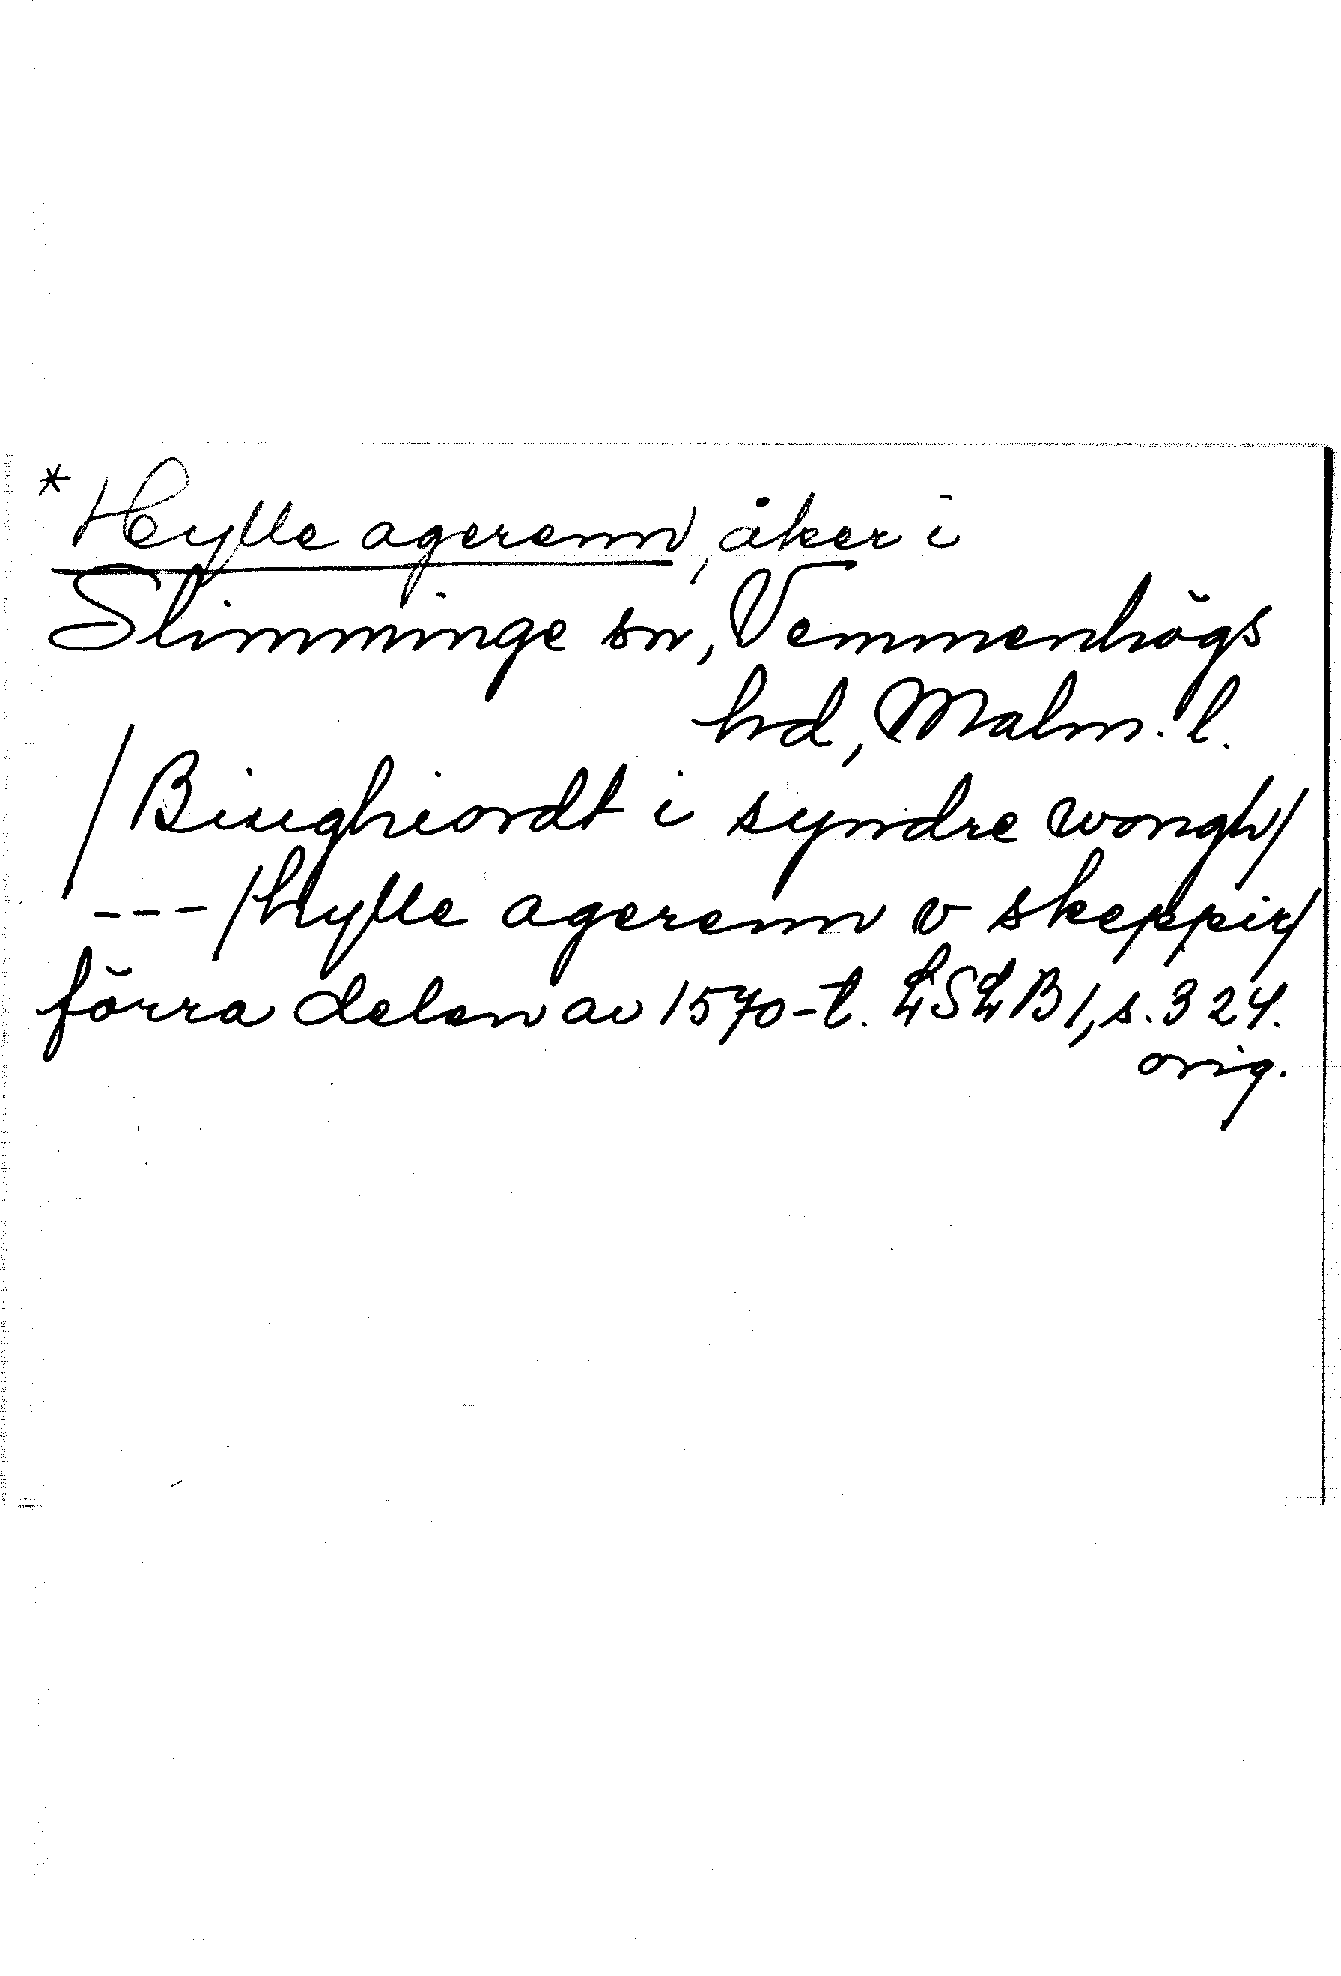 * Hylle agerenn, åker i
Slimminge sn, Vemmenhögs
hd, Malm. l.
/Biughiordt i syndre wongh/
--- /hylle agerenn v skeppir/
förra delen av 1570-t. LSLB 1, s. 324.
orig.